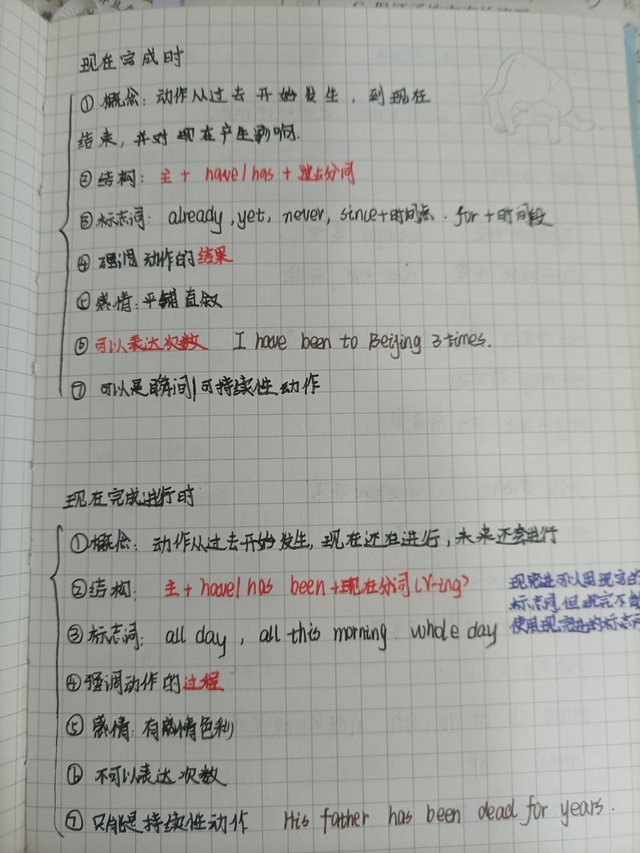 现在完成时
① 概念：动作从过去开始发生，到现在
结束，并对现在产生影响.
② 结构：主 + have/has + 过去分词
③ 标志词：already, yet, never, since+时间点. for+时间段
④ 强调动作的结果
⑤ 感情：平铺直叙
⑥ 可以表达次数 I have been to Beijing 3 times.
⑦ 可以是瞬间/可持续性动作
现在完成进行时
① 概念：动作从过去开始发生, 现在还在进行, 未来还会进行
② 结构：主 + have/has been + 现在分词(V-ing)
现完进可以用现完的
标志词,但现完不能
使用现完进的标志词
③ 标志词：all day, all this morning. whole day
④ 强调动作的过程
⑤ 感情：有感情色彩
⑥ 不可以表达次数
⑦ 只能是持续性动作 His father has been dead for years.